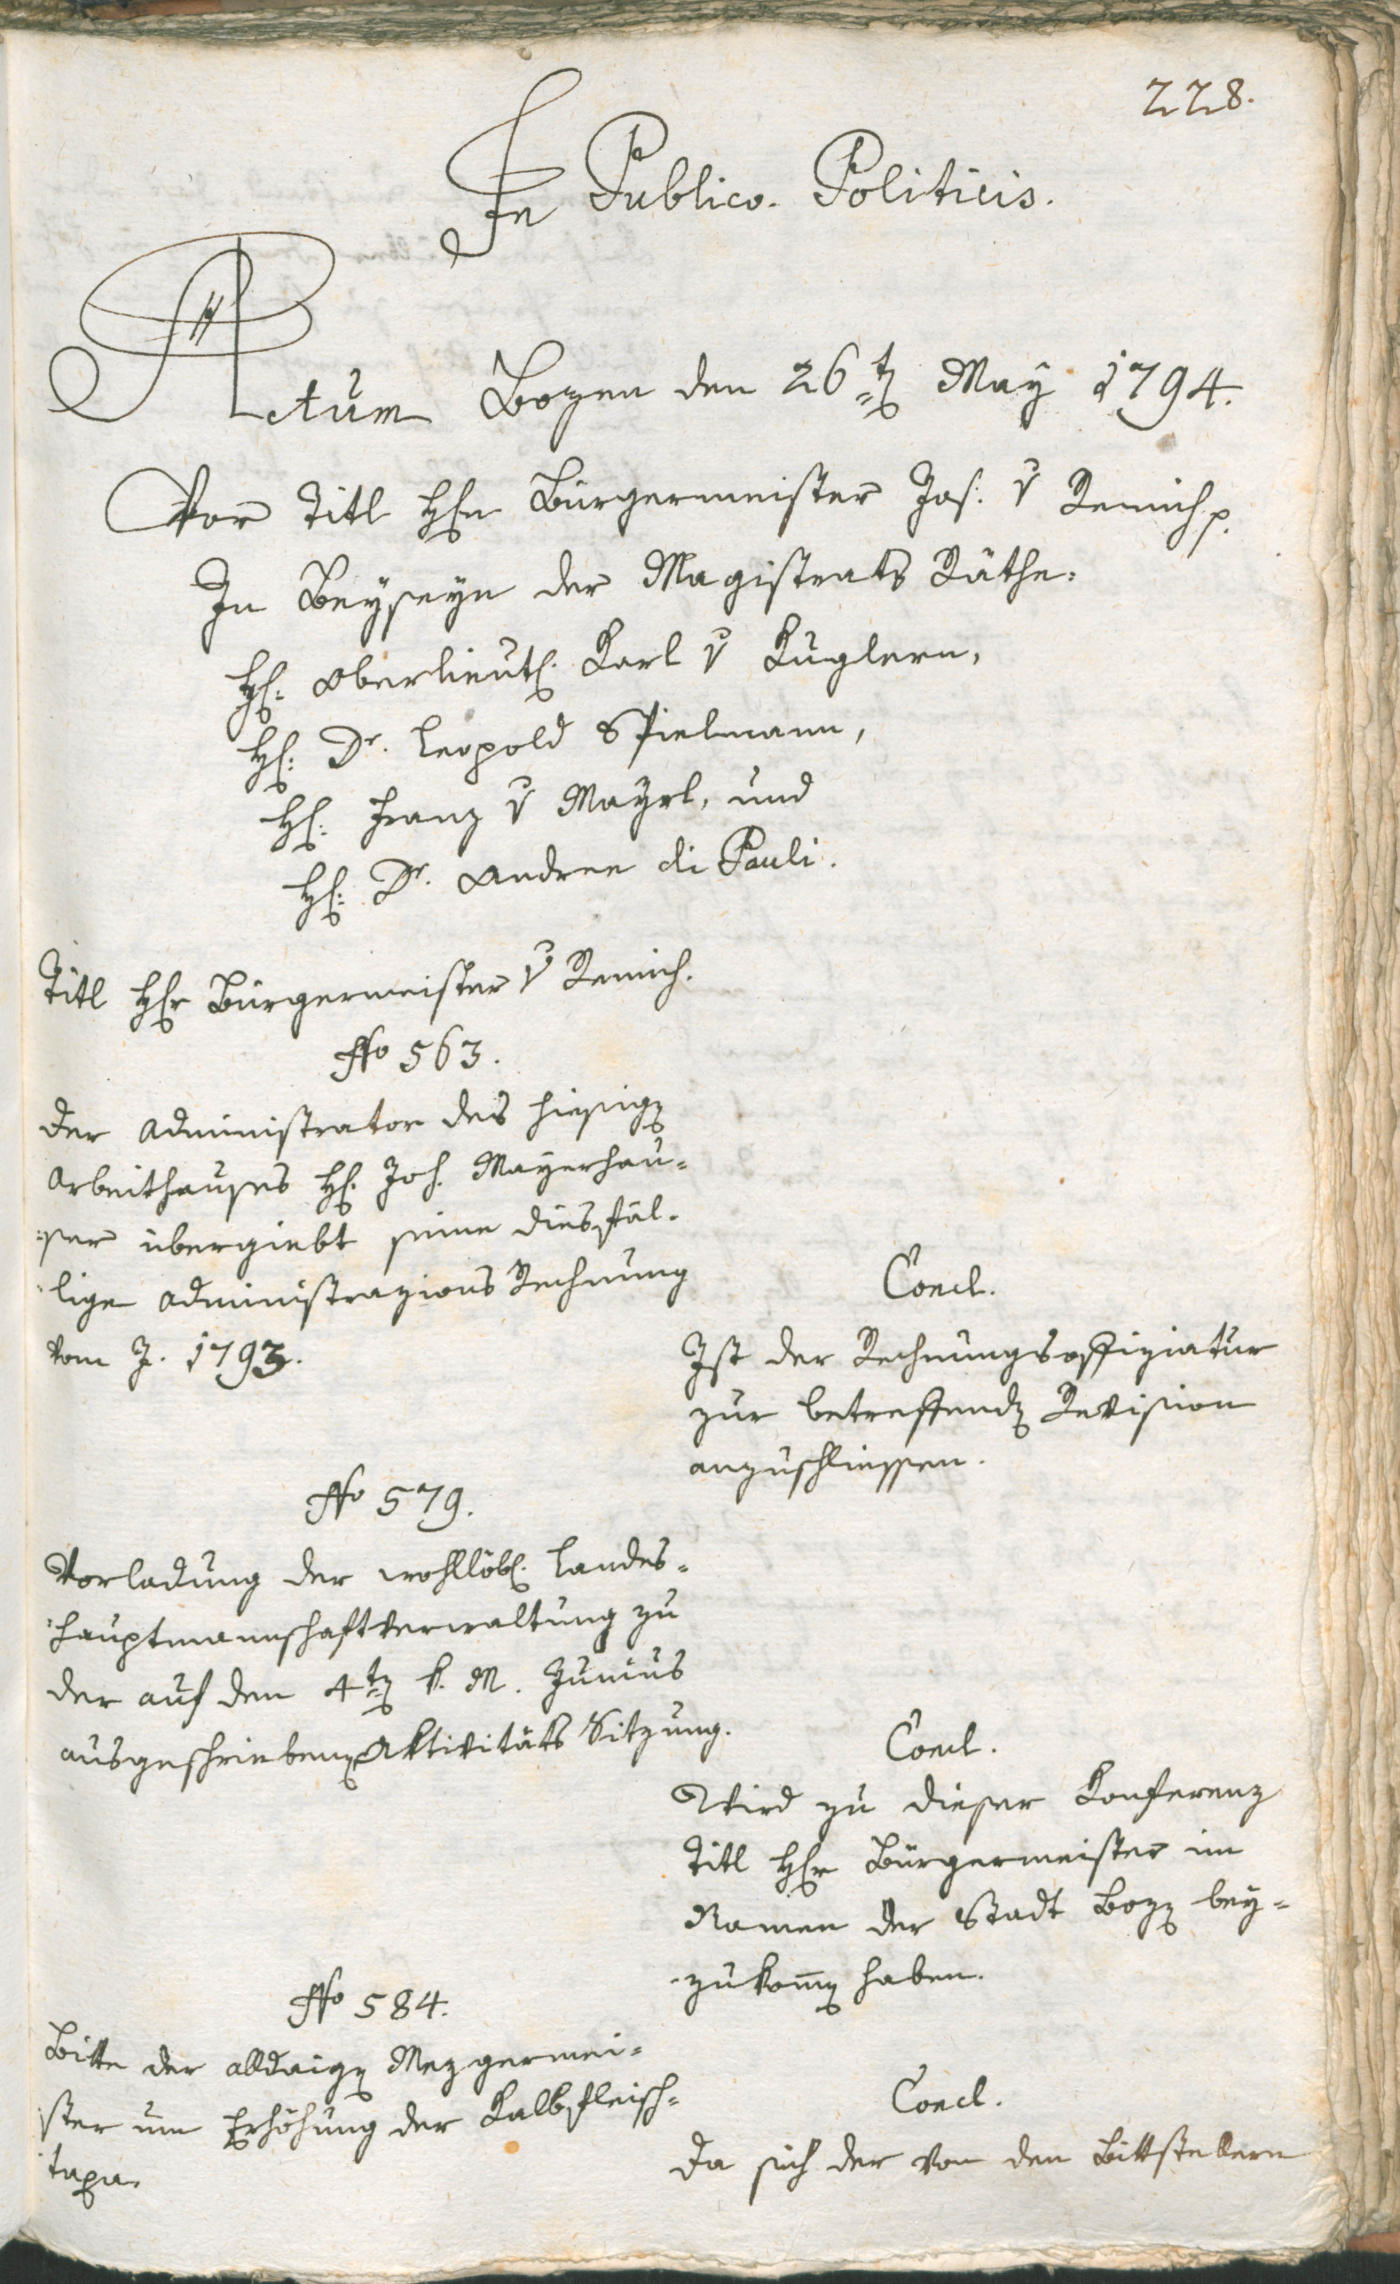 228.
In Publico. Politicis.
Actum Bozen den 26t. May 1794.
Vor Titl Hrn Bürgermeister Jos. v Remich p.
In Beyseyn der Magistrats Räthe.
H: Oberlieut. Karl v Kuglern,
H: Dr. Leopold Spielmann,
H: Franz v Mayrl, und
H: Dr. Andree di Pauli.
Titl Hr Bürgermeister v Remich.
No 563.
Der Administrator des hiesigen
Arbeithauses H. Joh. Mayerhau-
ser übergiebt seine diesfäl-
lige Administrazions Rechnung
vom J. 1793.
Concl.
Ist der Rechnungsoffiziatur
zur betreffenden Revision
anzuschliessen.
No 579.
Vorladung der wohllöbl. Landes-
hauptmannschaftverwaltung zu
der auf den 4ten k. M. Junius
ausgeschriebenen Aktivitäts Sitzung.
Concl.
Wird zu dieser Konferenz
Titl Hr Bürgermeister im
Namen der Stadt Bozen bey-
zukommen haben.
No 584.
Bitte der alldaigen Mezgermei-
ster um Erhöhung der Kalbfleisch-
taxa.
Concl.
Da sich der von den Bittstellern